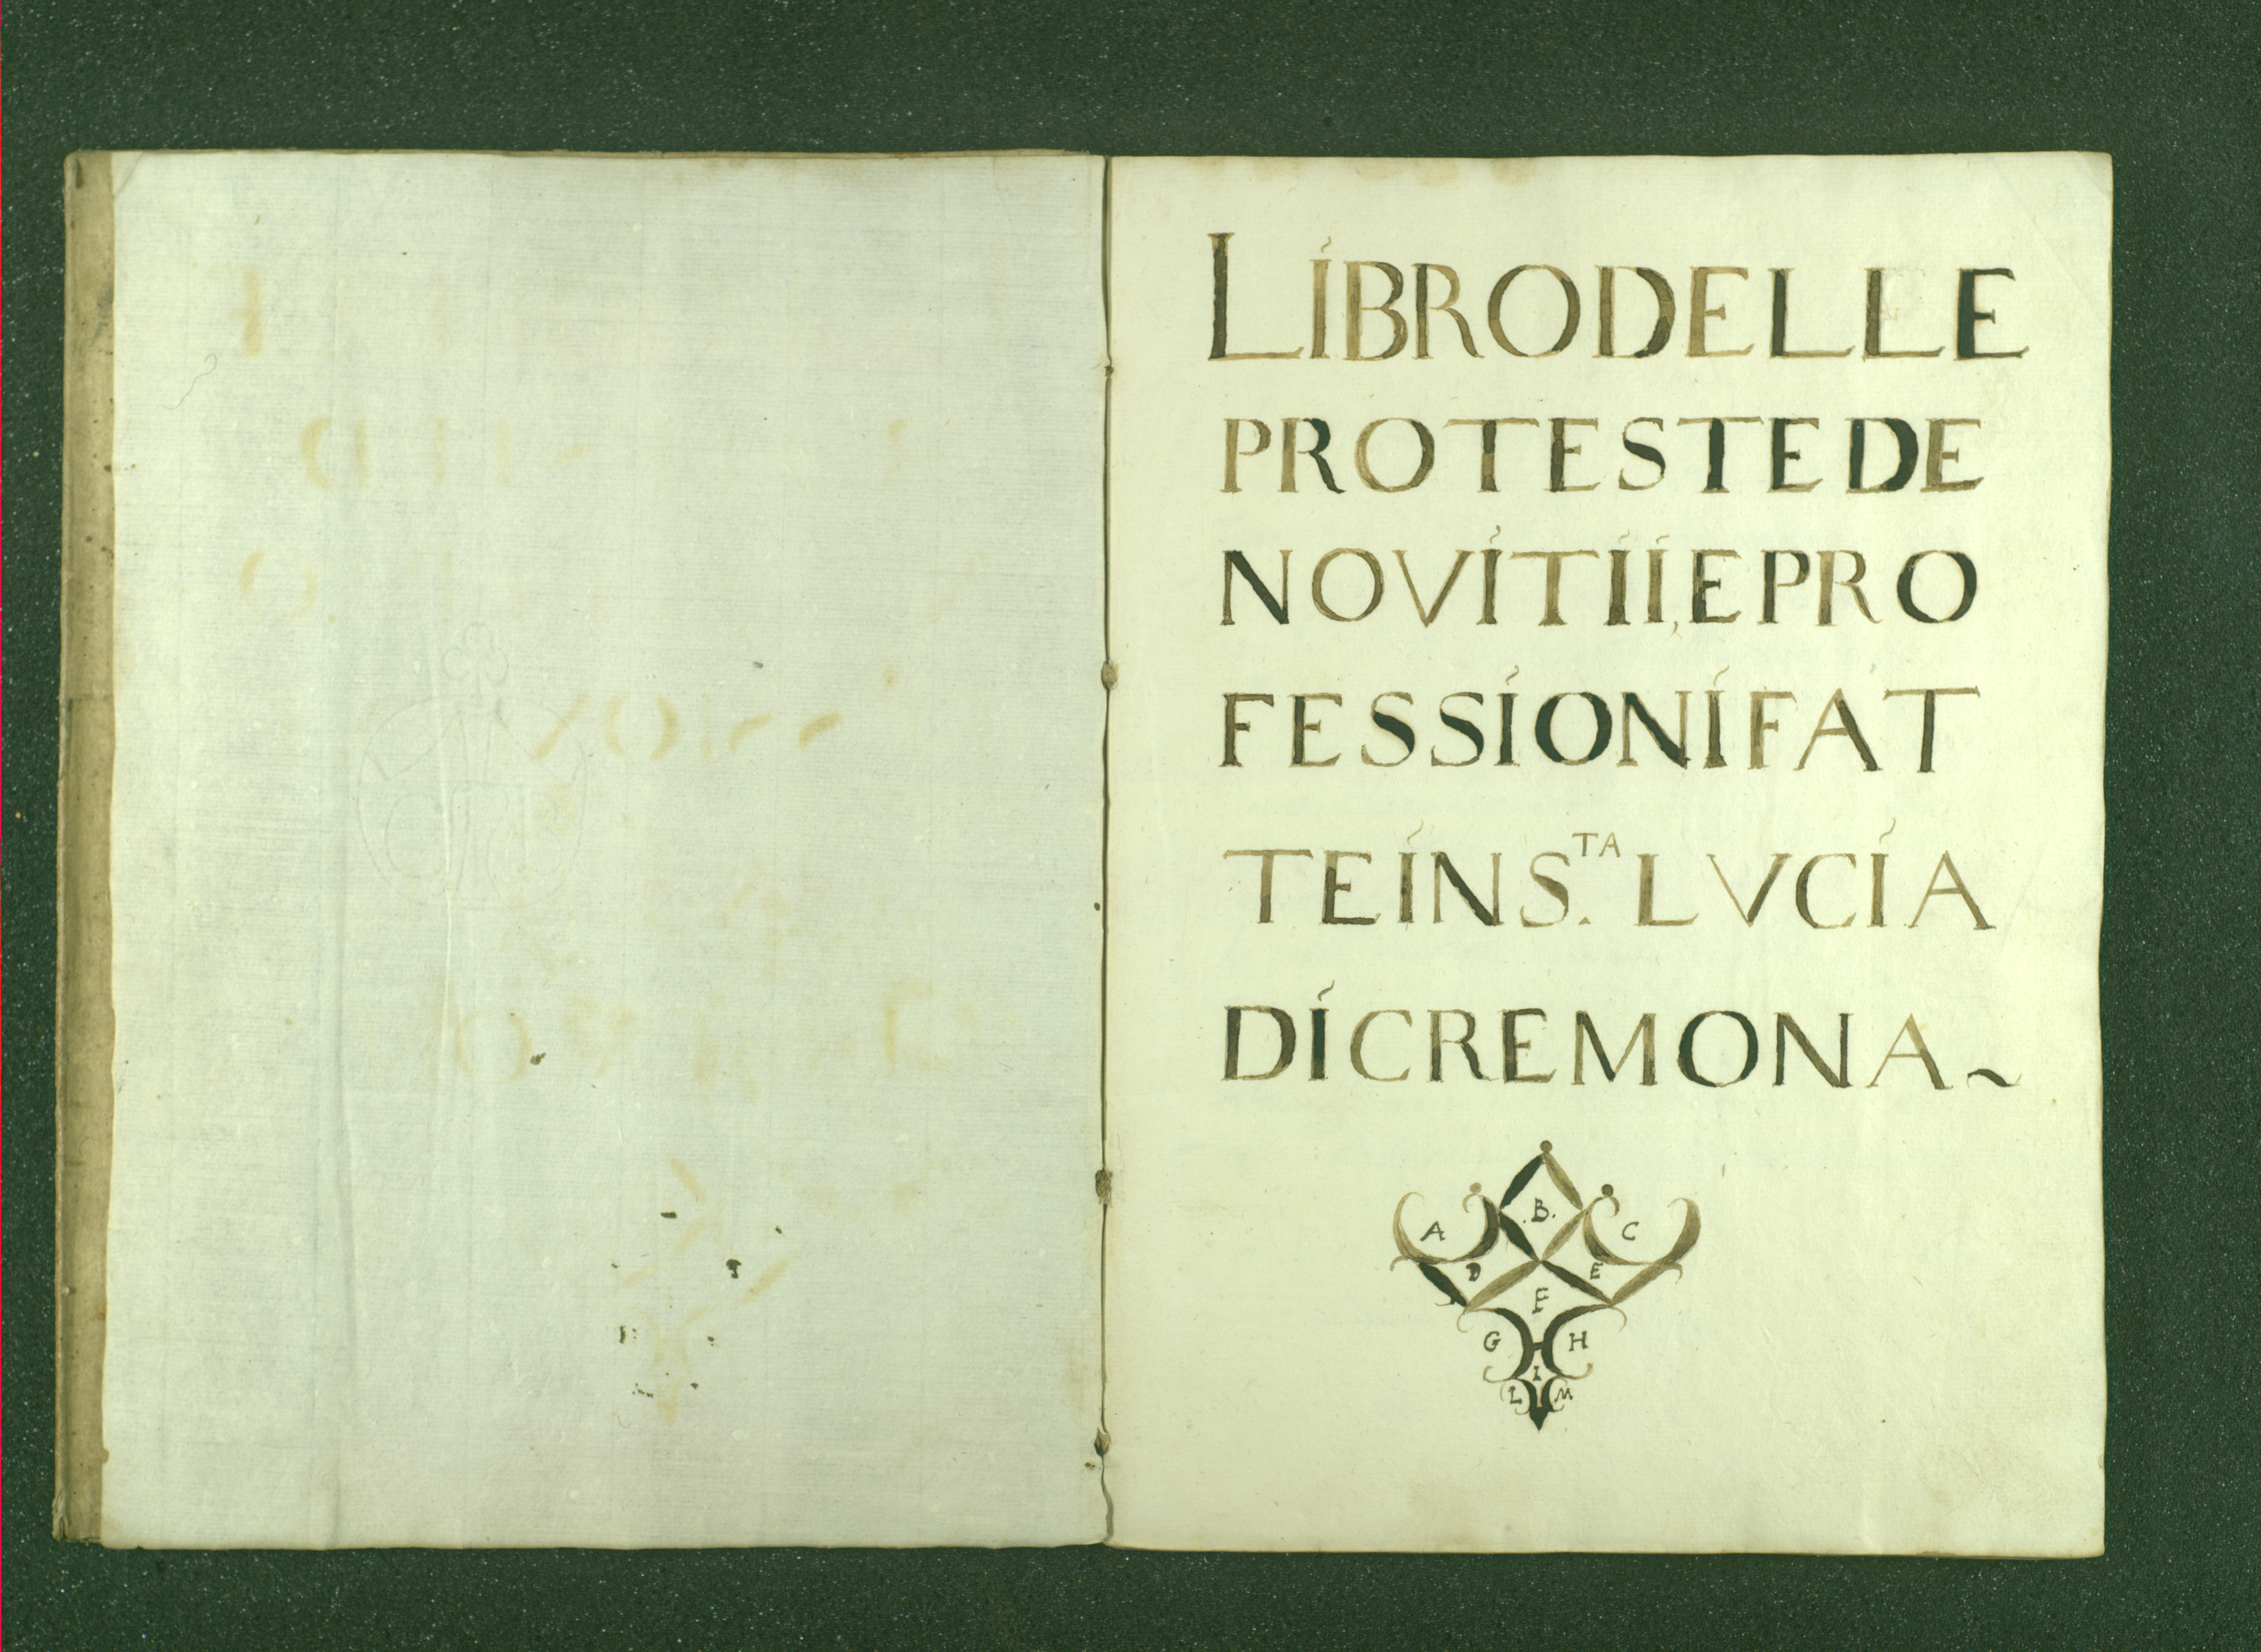 LIBRO DELLE
PROTESTE DE
NOVITII, E PRO
FESSIONI FAT
TE IN S.TA LVCIA
DI CREMONA~
A .B. C
D E
F
G H
I
L M